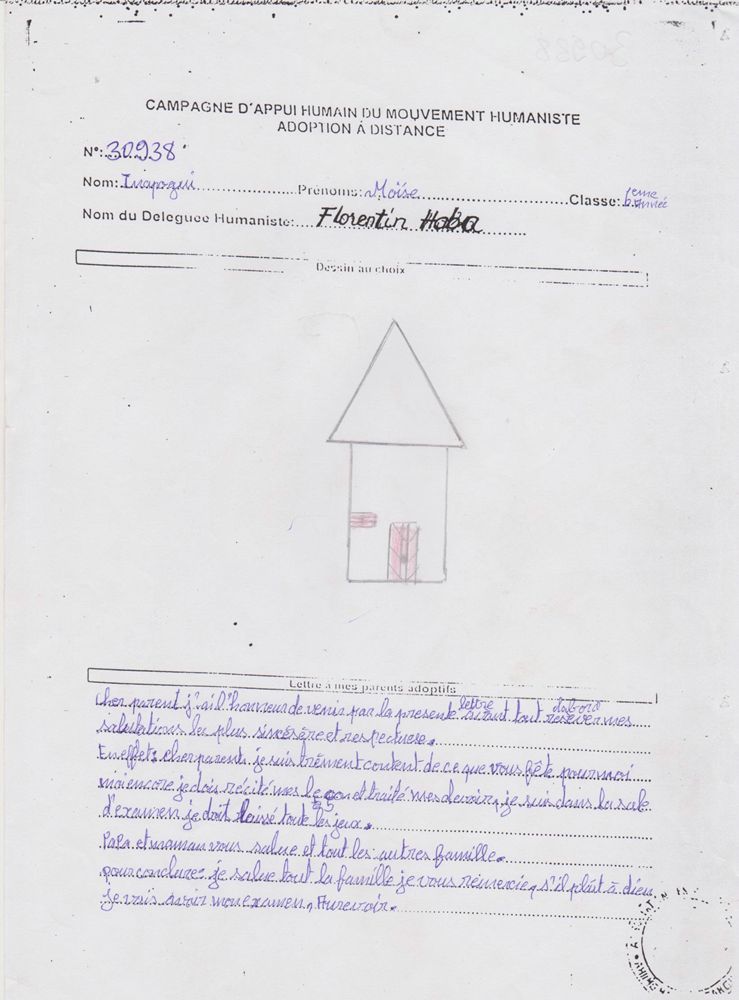 CAMPAGNE D'APPUI HUMAIN DU MOUVEMENT HUMANISTE
ADOPTION À DISTANCE
N°: 30938
Nom: Inapogui Prénoms: Moïse Classe: 6ème Année
Nom du Deleguee Humaniste: Florentin Haba
Dessin au choix
Lettre à mes parents adoptifs
Cher parent j'ai l'honneur de venir par la presente lettre avant tout dabord reserver mes
salutations les plus sincèsère et respectuese.
En effet: cher parents je suis trèment content de ce que vous fête pour moi
moi encore je dois récité mes leçon et traité mes devoirs, je suis dans la sale
d'examen je doit laissé toute les jeux.
PaPa et maman vous salue et tout les autres famille.
pour conclure: je salue tout la famille je vous remercie, s'il plaît à dieu
je vais avoir mon examen, Aurevoir.